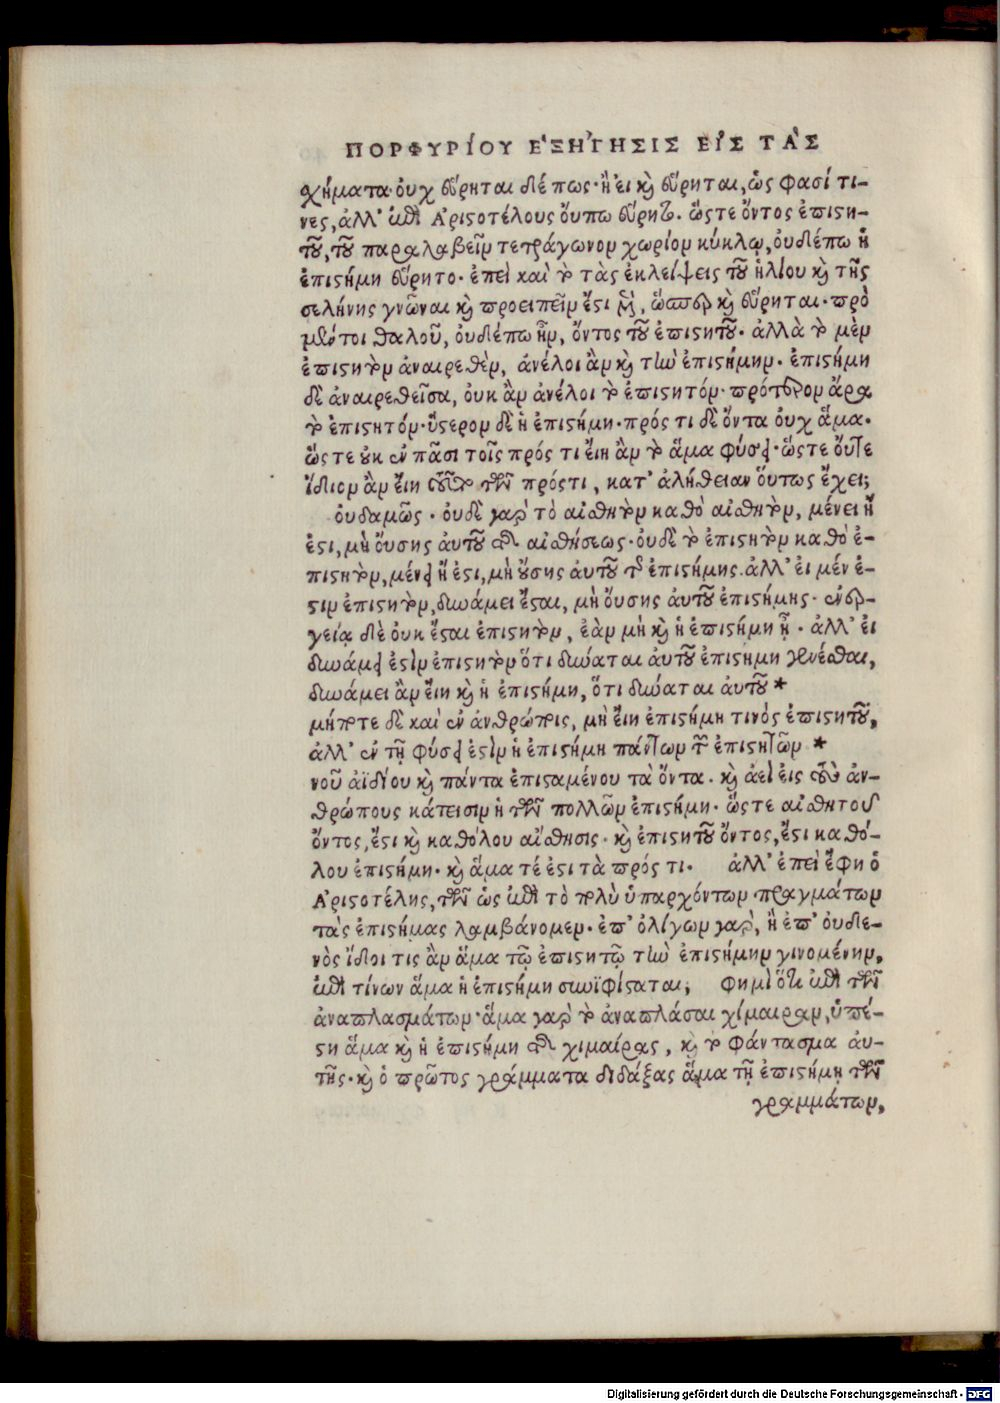 ΠΟΡΦΥΡΙΟΥ ΕΞΗΓΗΣΙΣ ΕΙΣ ΤΑΣ
χήματα· οὐχ εὕρηται δέ πως· ἢ εἰ καὶ εὕρηται, ὡς φασί τι-
νες, ἀλλ' ἐπὶ Ἀριστοτέλους οὔπω εὕρητο. ὥστε ὄντος ἐπιστη-
τοῦ, τοῦ παραλαβεῖν τετράγωνον χωρίον κύκλῳ, οὐδέπω ἡ
ἐπιστήμη εὕρητο. ἐπεὶ καὶ τὸ τὰς ἐκλείψεις τοῦ ἡλίου καὶ τῆς
σελήνης γνῶναι καὶ προειπεῖν ἔστι μὲν, ὥσπερ καὶ εὕρηται. πρὸ
μέντοι θαλοῦ, οὐδέπω ἦν, ὄντος τοῦ ἐπιστητοῦ. ἀλλὰ τὸ μὲν
ἐπιστητὸν ἀναιρεθὲν, ἀνέλοι ἂν καὶ τὴν ἐπιστήμην. ἐπιστήμη
δὲ ἀναιρεθεῖσα, οὐκ ἂν ἀνέλοι τὸ ἐπιστητόν. πρότερον ἄρα
τὸ ἐπιστητόν. ὕστερον δὲ ἡ ἐπιστήμη. πρός τι δὲ ὄντα οὐχ ἅμα.
ὥστε οὐκ ἐν πᾶσι τοῖς πρός τι εἴη ἂν τὸ ἅμα φύσει. ὥστε οὔτε
ἴδιον ἂν εἴη τοῦτο τῶν πρόςτι, κατ' ἀλήθειαν οὕτως ἔχει;
οὐδαμῶς. οὐδὲ γὰρ τὸ αἰσθητὸν καθὸ αἰσθητὸν, μένει ἢ
ἔστι, μὴ οὔσης αὐτοῦ τῆς αἰσθήσεως. οὐδὲ τὸ ἐπιστητὸν καθὸ ἐ-
πιστητὸν, μένει ἢ ἔστι, μὴ οὔσης αὐτοῦ τῆς ἐπιστήμης. ἀλλ' εἰ μέν ἐ-
στιν ἐπιστητὸν, δυνάμει ἔσται, μὴ οὔσης αὐτοῦ ἐπιστήμης. ἐνερ-
γείᾳ δὲ οὐκ ἔσται ἐπιστητὸν, ἐὰν μὴ καὶ ἡ ἐπιστήμη ᾖ. ἀλλ' εἰ
δυνάμει ἐστὶν ἐπιστητὸν ὅτι δύναται αὐτοῦ ἐπιστήμη γενέσθαι,
δυνάμει ἂν εἴη καὶ ἡ ἐπιστήμη, ὅτι δύναται αὐτοῦ *
μήποτε δὲ καὶ ἐν ἀνθρώποις, μὴ εἴη ἐπιστήμη τινὸς ἐπιστητοῦ,
ἀλλ' ἐν τῇ φύσει ἐστὶν ἡ ἐπιστήμη πάντων τῶν ἐπιστητῶν *
νοῦ ἀϊδίου καὶ πάντα ἐπισταμένου τὰ ὄντα. καὶ ἀεὶ εἰς τοὺς ἀν-
θρώπους κάτεισιν ἡ τῶν πολλῶν ἐπιστήμη. ὥστε αἰσθητοῦ
ὄντος, ἔστι καὶ καθόλου αἴσθησις. καὶ ἐπιστητοῦ ὄντος, ἔστι καθό-
λου ἐπιστήμη. καὶ ἅμα τέ ἐστι τὰ πρός τι. ἀλλ' ἐπεὶ ἔφη ὁ
Ἀριστοτέλης, τῶν ὡς ἐπὶ τὸ πολὺ ὑπαρχόντων πραγμάτων
τὰς ἐπιστήμας λαμβάνομεν. ἐπ' ὀλίγων γὰρ, ἢ ἐπ' οὐδε-
νὸς ἴδοι τις ἂν ἅμα τῷ ἐπιστητῷ τὴν ἐπιστήμην γινομένην,
ἐπὶ τίνων ἅμα ἡ ἐπιστήμη συνυφίσταται; φημὶ ὅτι ἐπὶ τῶν
ἀναπλασμάτων· ἅμα γὰρ τὸ ἀναπλάσαι χίμαιραν, ὑπέ-
στη ἅμα καὶ ἡ ἐπιστήμη τῆς χιμαίρας, καὶ τὸ φάντασμα αὐ-
τῆς. καὶ ὁ πρῶτος γράμματα διδάξας ἅμα τῇ ἐπιστήμῃ τῶν
γραμμάτων,
Digitalisierung gefördert durch die Deutsche Forschungsgemeinschaft - DFG